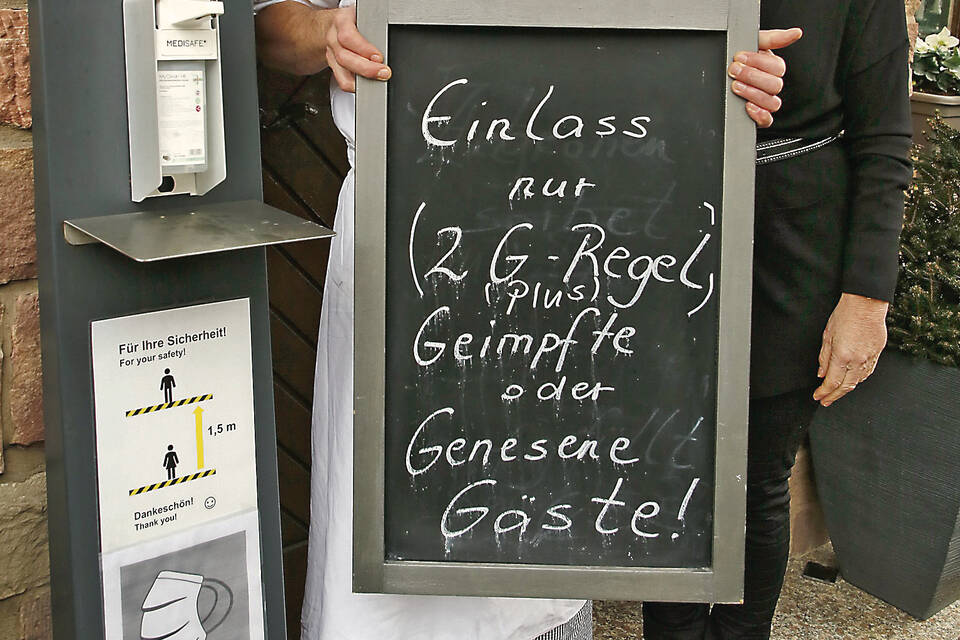 MEDISAFE
Einlass
nur
(2 G-Regel)
(plus)
Geimpfte
oder
Genesene
Gäste!
Für Ihre Sicherheit!
For your safety!
1,5 m
Dankeschön!
Thank you!